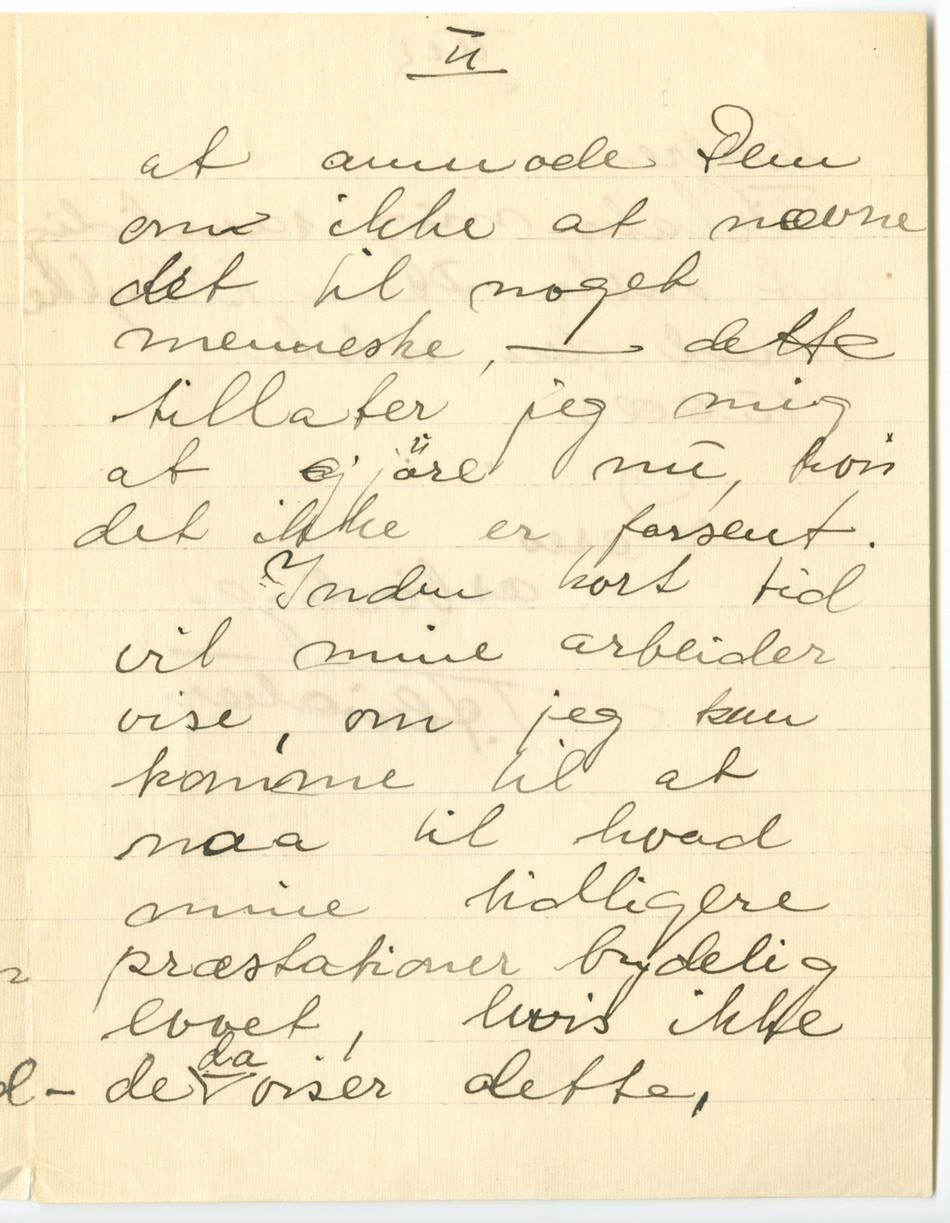 II
at anmode Dem
om ikke at nævne
det til noget
menneske, — dette
tillater jeg mig
at gjöre nu, hvis
det ikke er forsent.
Inden kort tid
vil mine arbeider
vise, om jeg kan
komme til at
naa til hvad
mine tidligere
præstationer bydelig
lovet, hvis ikke
de da viser dette,